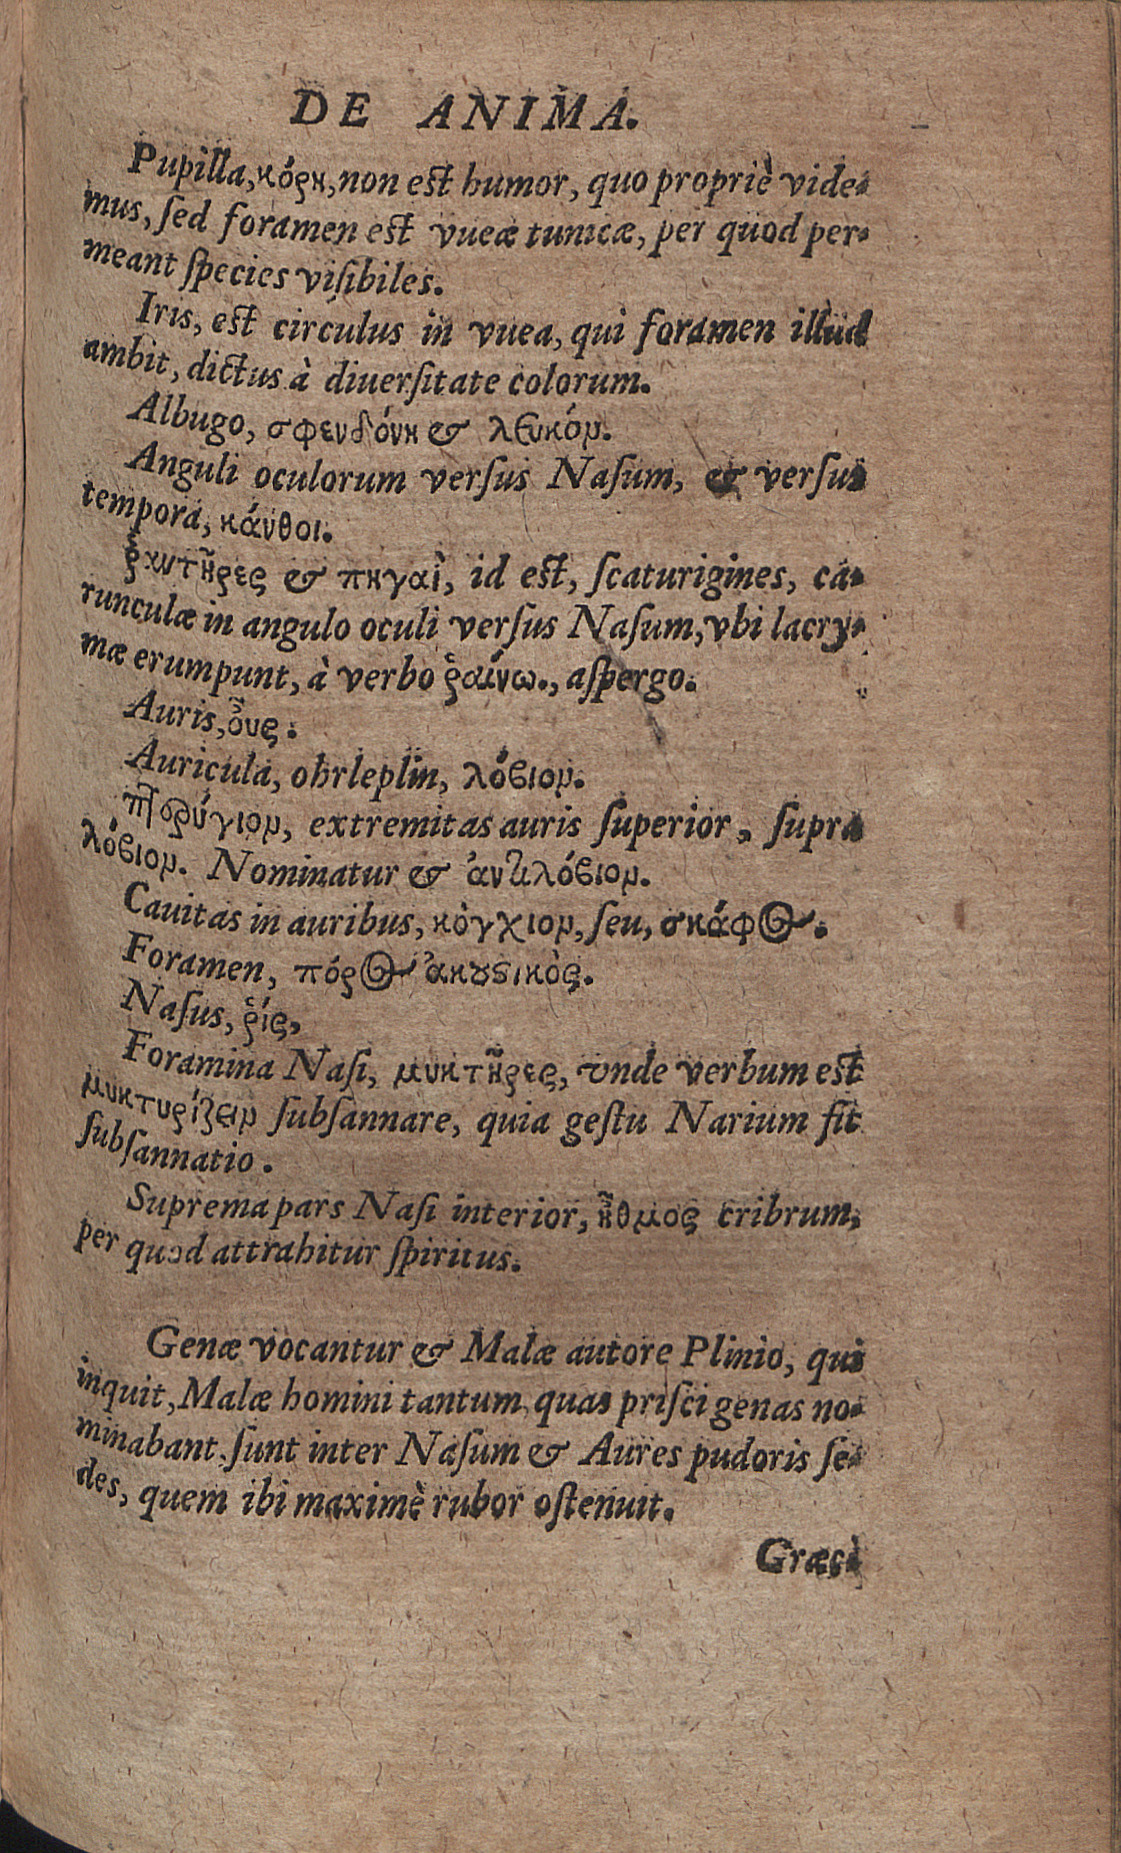 DE ANIMA.
Pupilla, κόρη, non est humor, quo propriè vide-
mus, sed foramen est vueæ tunicæ, per quod per-
meant species visibiles.
Iris, est circulus in vuea, qui foramen illud
ambit, dictus à diuersitate colorum.
Albugo, σφενδόνη & λευκόν.
Anguli oculorum versus Nasum, & versus
tempora, κάνθοι.
ῥαντῆρες & πηγαὶ, id est, scaturigines, ca-
runculæ in angulo oculi versus Nasum, vbi lacry-
mæ erumpunt, à verbo ῥαίνω., aspergo.
Auris, οὖς.
Auricula, ohrleplin, λόβιον.
πτερύγιον, extremitas auris superior, supra
λόβιον. Nominatur & ἀντιλόβιον.
Cauitas in auribus, κόγχιον, seu, σκάφος.
Foramen, πόρος ἀκουστικὸς.
Nasus, ῥίς,
Foramina Nasi, μυκτῆρες, vnde verbum est
μυκτυρίζειν subsannare, quia gestu Narium fit
subsannatio.
Suprema pars Nasi interior, ἦθμος cribrum,
per quod attrahitur spiritus.
Genæ vocantur & Malæ autore Plinio, qui
inquit, Malæ homini tantum quas prisci genas no-
minabant, sunt inter Nasum & Aures pudoris se-
des, quem ibi maximè rubor ostenuit.
Græci